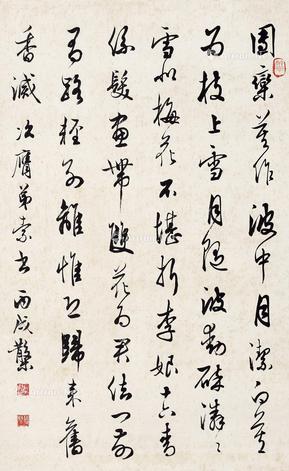 團欒莫作波中月潔白莫
為枝上雪月隨波動碎潾〻
雪似梅花不堪折李娘十六青
絲髮畫帶雙花為君結門前
有路輕別離惟恐歸來舊
香滅 次膺弟索書 丙戌